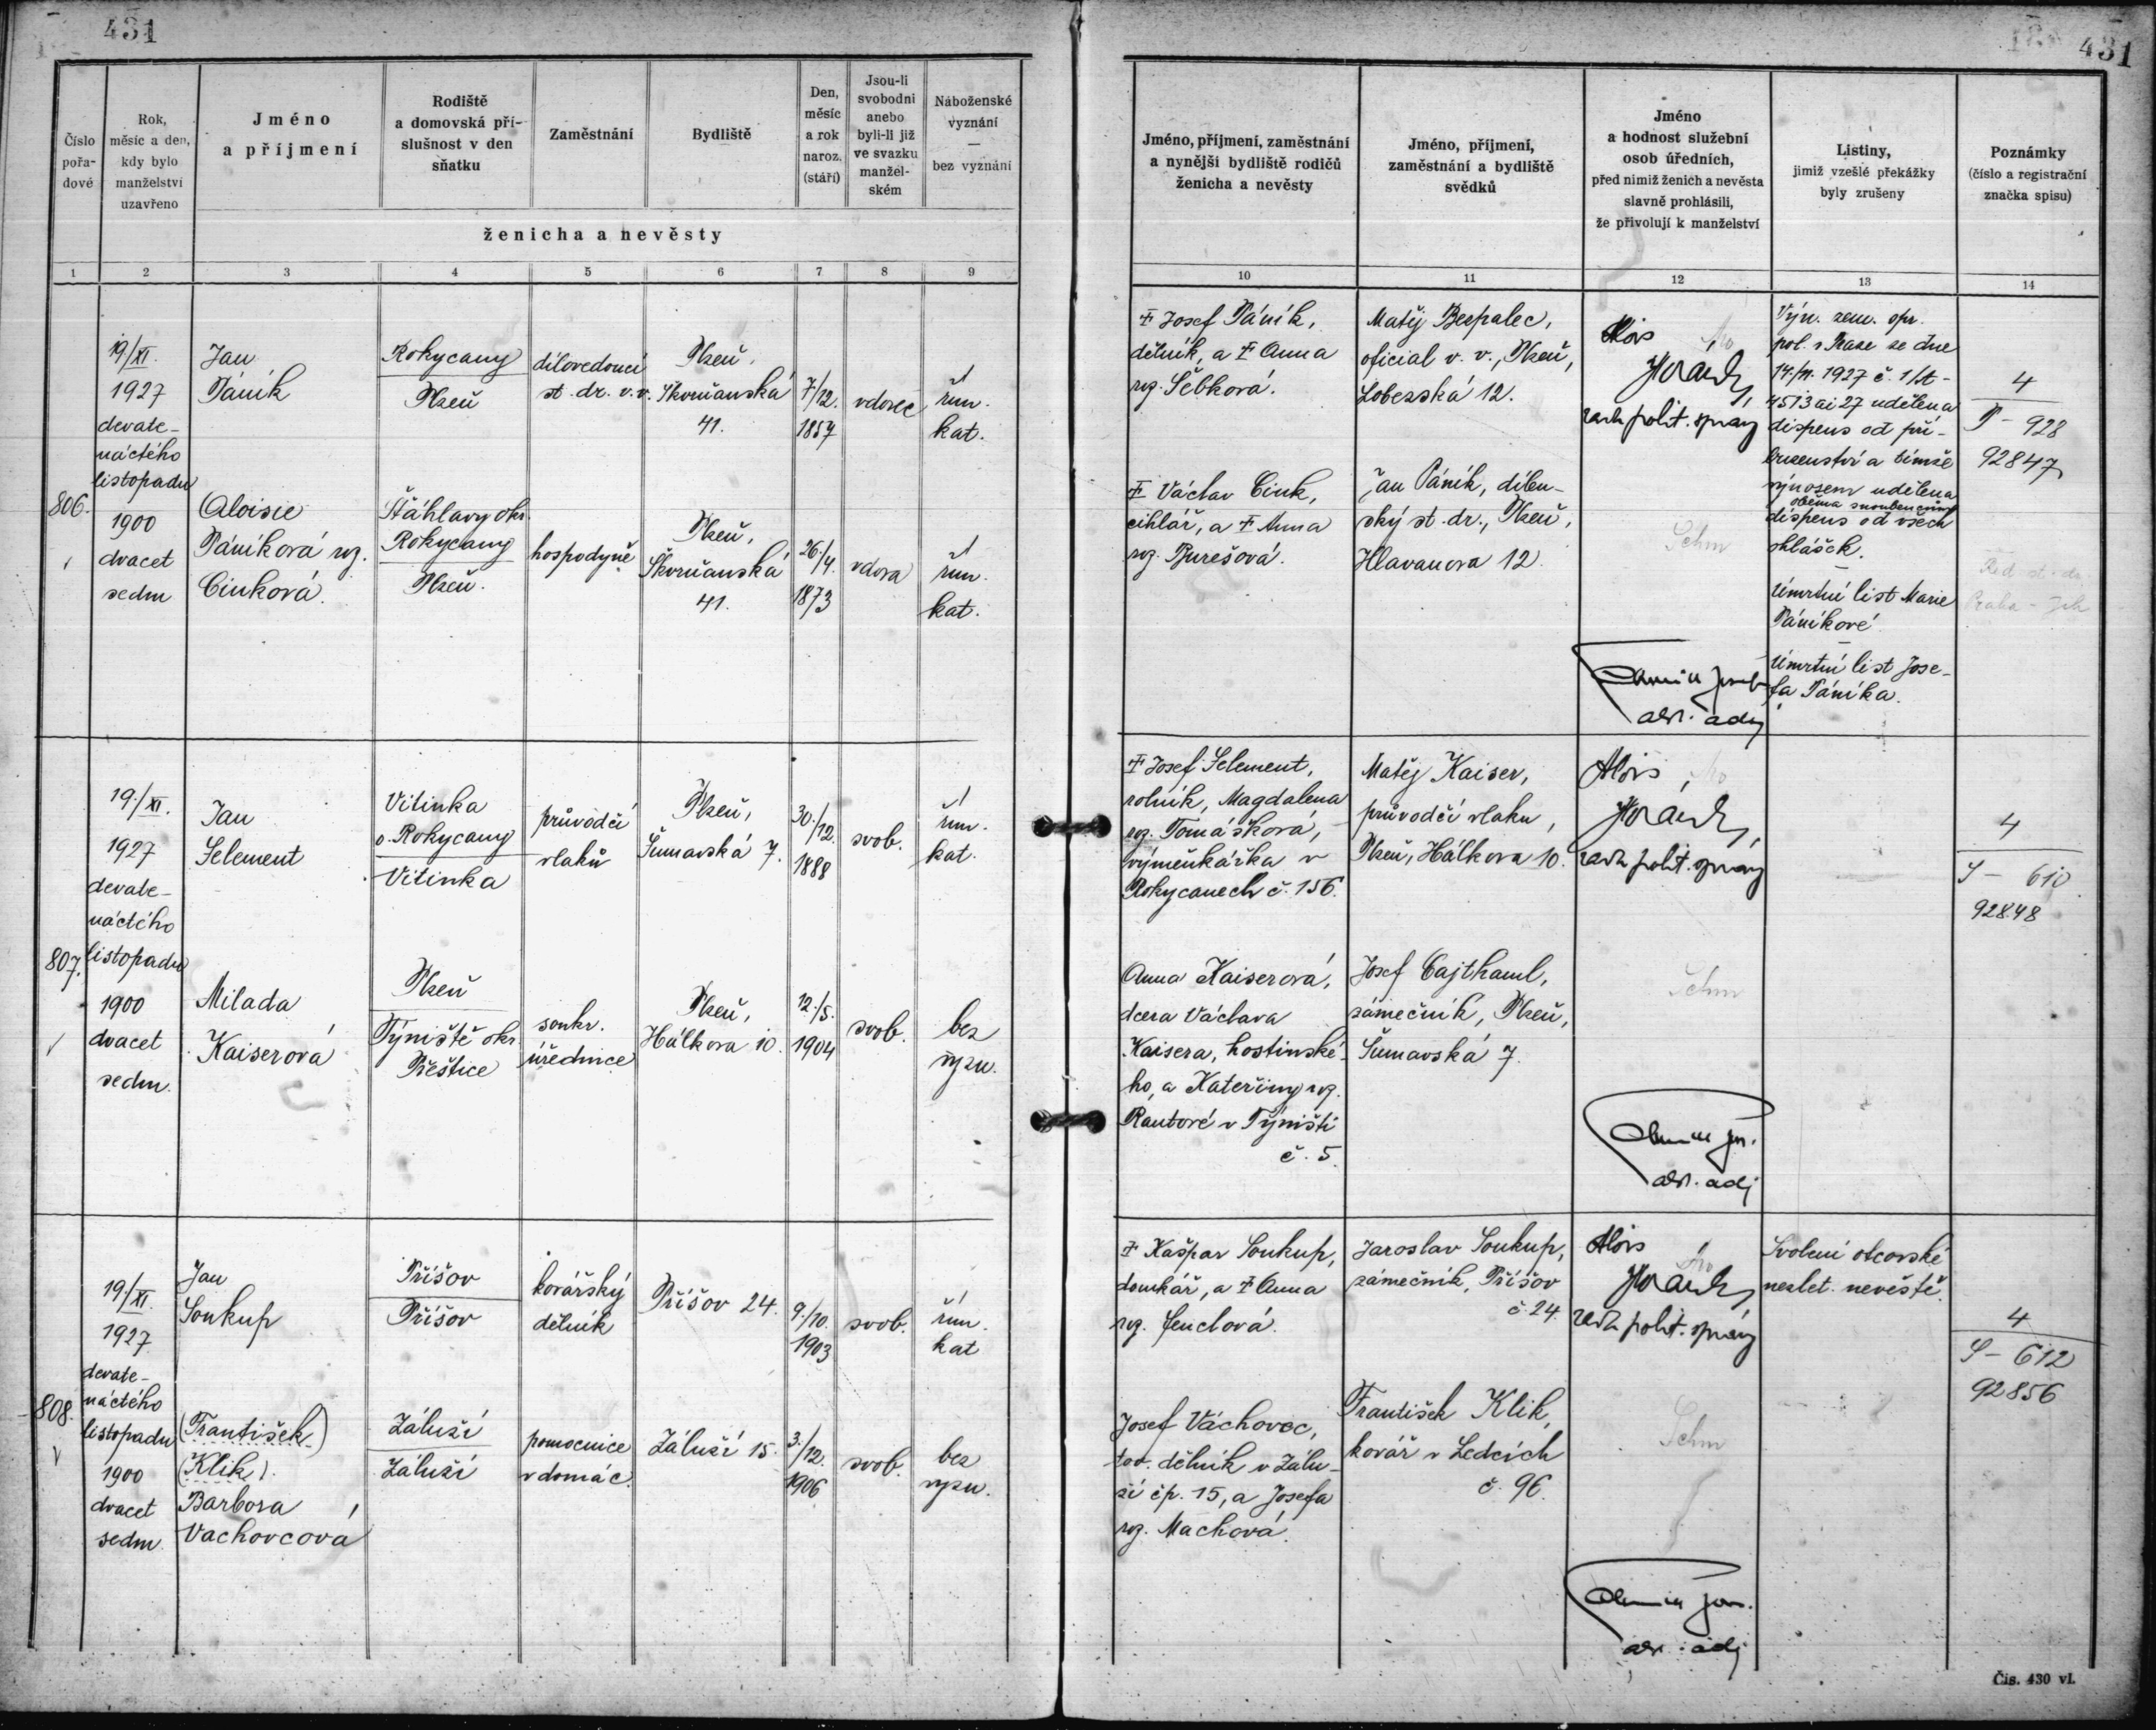 431
431
Číslo pořadové
Rok, měsíc a den, kdy bylo manželství uzavřeno
Jméno a příjmení
Rodiště a domovská příslušnost v den sňatku
Zaměstnání
Bydliště
Den, měsíc a rok naroz. (stáří)
Jsou-li svobodni anebo byli-li již ve svazku manželském
Náboženské vyznání — bez vyznání
ženicha a nevěsty
Jméno, příjmení, zaměstnání a nynější bydliště rodičů ženicha a nevěsty
Jméno, příjmení, zaměstnání a bydliště svědků
Jméno a hodnost služební osob úředních, před nimiž ženich a nevěsta slavně prohlásili, že přivolují k manželství
Listiny, jimiž vzešlé překážky byly zrušeny
Poznámky (číslo a registrační značka spisu)
1 2 3 4 5 6 7 8 9 10 11 12 13 14
806.
19/XI.
1927
devate-
náctého
listopadu
1900
dvacet
sedm
Jan
Páník
Rokycany
Plzeň
dílovedoucí
st. dr. v.v.
Plzeň,
Skvrňanská
41.
7/12.
1857
vdovec
řím.
kat.
Aloisie
Páníková roz.
Cinková.
Štáhlavy okr.
Rokycany
Plzeň.
hospodyně
Plzeň,
Skvrňanská
41.
26./4.
1873
vdova
řím.
kat.
Ŧ Josef Páník,
dělník, a Ŧ Anna
roz. Šebková.
Ŧ Václav Cink,
cihlář, a Ŧ Anna
roz. Burešová.
Matěj Bespalec,
oficial v. v., Plzeň,
Lobezská 12.
Jan Páník, dílen-
ský st. dr., Plzeň,
Hlavanova 12.
Alois
rada polit. správy
Schm
adj
Výn. zem. spr.
pol. v Praze ze dne
14./XI. 1927 č. 1/A-
4513 ai 27 udělena
dispens od pří-
buzenství a týmže
výnosem udělena
oběma snoubencům
dispens od všech
ohlášek.
—
Úmrtní list Marie
Páníkové
—
Úmrtní list Jose-
fa Páníka.
4
P - 928
92847
807.
19./XI.
1927
devate-
náctého
listopadu
1900
dvacet
sedm.
Jan
Selement
Vitinka
o. Rokycany
Vitinka
průvodčí
vlaků
Plzeň,
Šumavská 7.
30./12.
1888
svob.
řím.
kat.
Milada
Kaiserová
Plzeň
Týniště okr.
Přeštice
soukr.
úřednice
Plzeň,
Hálkova 10.
12./5.
1904
svob.
bez
vyzn.
Ŧ Josef Selement,
rolník, Magdalena
roz. Tomášková,
výměnkářka v
Rokycanech č. 156.
Anna Kaiserová,
dcera Václava
Kaisera, hostinské-
ho, a Kateřiny roz.
Rautové v Týništi
č. 5.
Matěj Kaiser,
průvodčí vlaku,
Plzeň, Hálkova 10.
Josef Cajthaml,
zámečník, Plzeň,
Šumavská 7.
Alois
rada polit. správy
Schm
adj
4
S - 610
92848
808.
19/XI.
1927
devate-
náctého
listopadu
1900
dvacet
sedm
Jan
Soukup
Příšov
Příšov
kovářský
dělník
Příšov 24.
9./10.
1903
svob.
řím.
kat
(František)
(Klik).
Barbora
Vachovcová
Záluží
Záluží
pomocnice
v domác.
Záluží 15.
3./12.
1906
svob.
bez
vyzn.
Ŧ Kašpar Soukup,
domkář, a Ŧ Anna
roz. Jenclová.
Josef Váchovec,
tov. dělník v Zálu-
ží čp. 15, a Josefa
roz. Machová.
Jaroslav Soukup,
zámečník, Příšov
č. 24.
František Klik,
kovář v Ledcích
č. 96.
Alois
rada polit. správy
Schm
adj
Svolení otcovské
nezlet. nevěstě.
4
S - 612
92856
Čís. 430 vl.